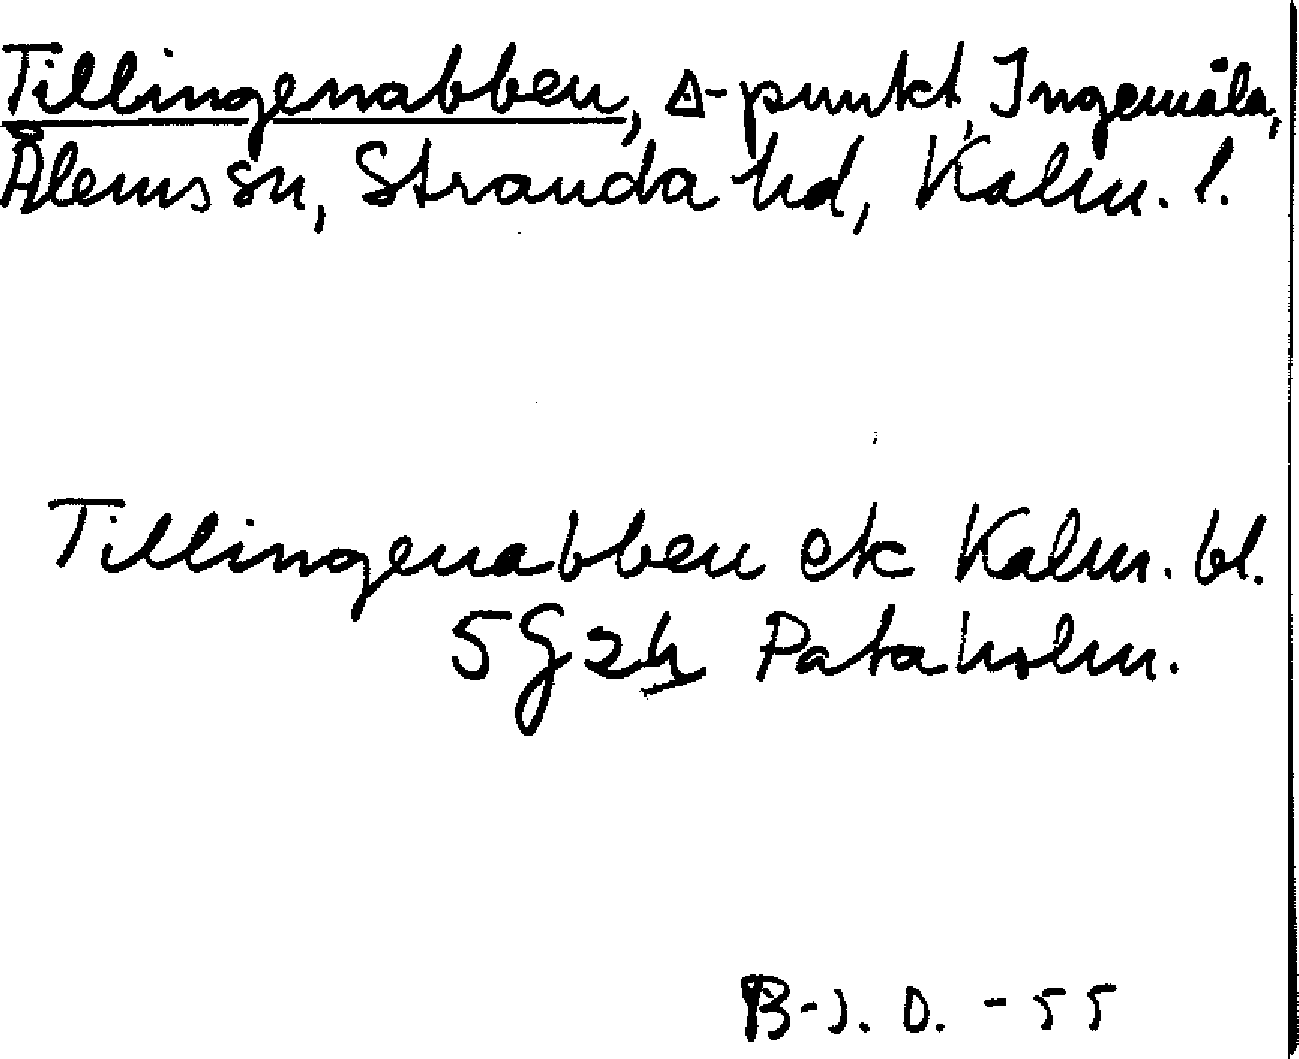 Tillingenabben, Δ-punkt, Ingemåla,
Ålems sn, Stranda hd, Kalm. l.
Tillingenabben ek Kalm. bl.
5 G 2h Pataholm.
B-J. D. -55